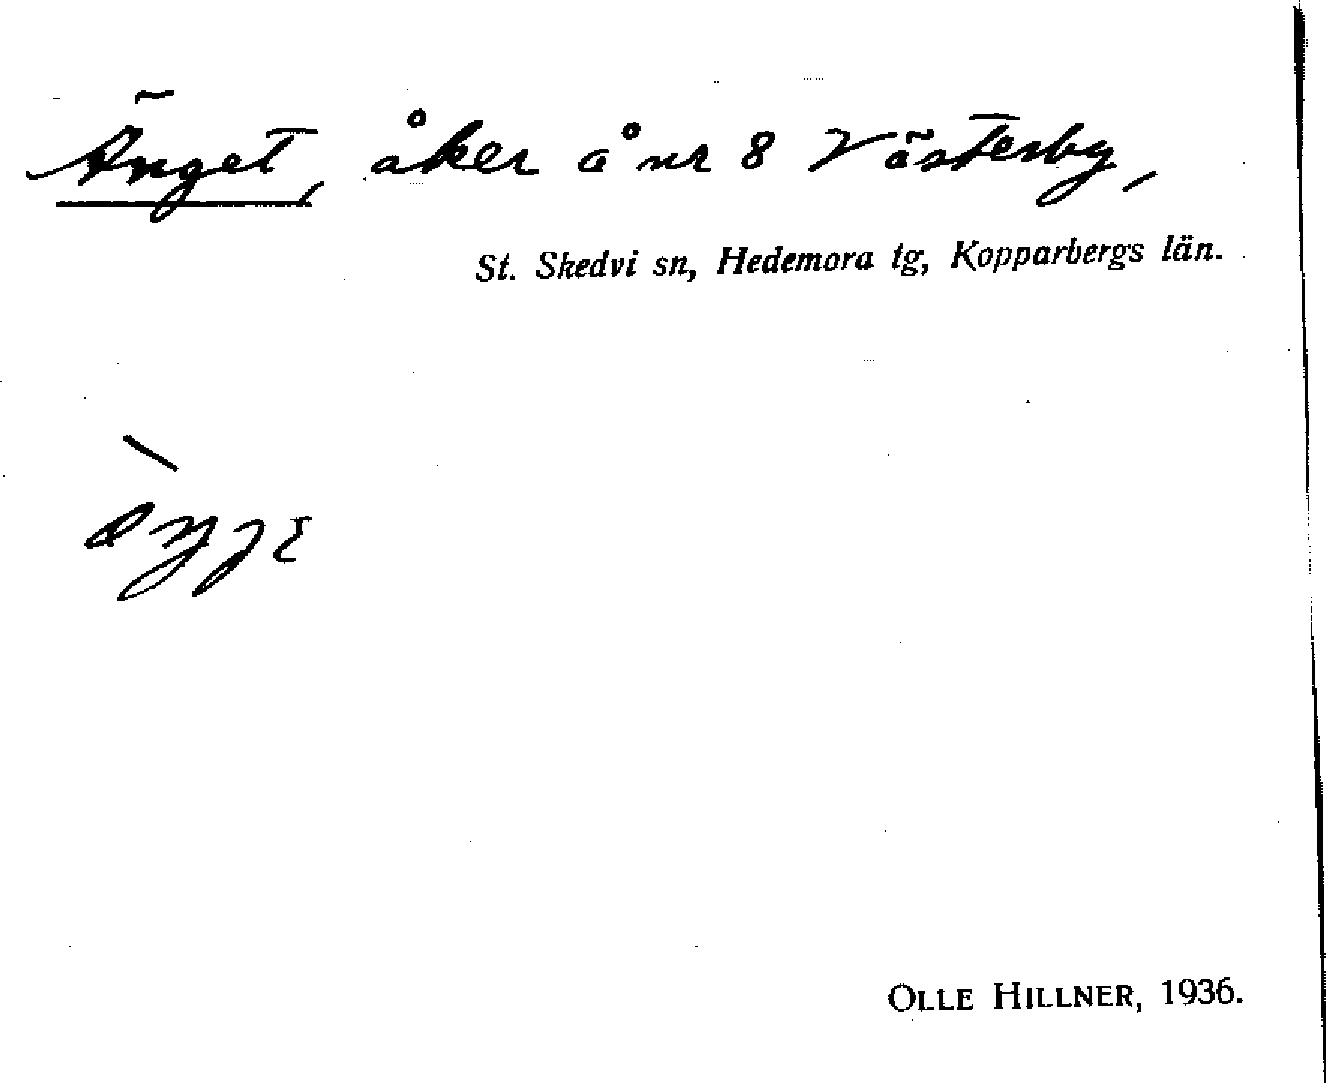 Änget, åker å nr 8 Västerby,
St. Skedvi sn, Hedemora tg, Kopparbergs län.
OLLE HILLNER, 1936.